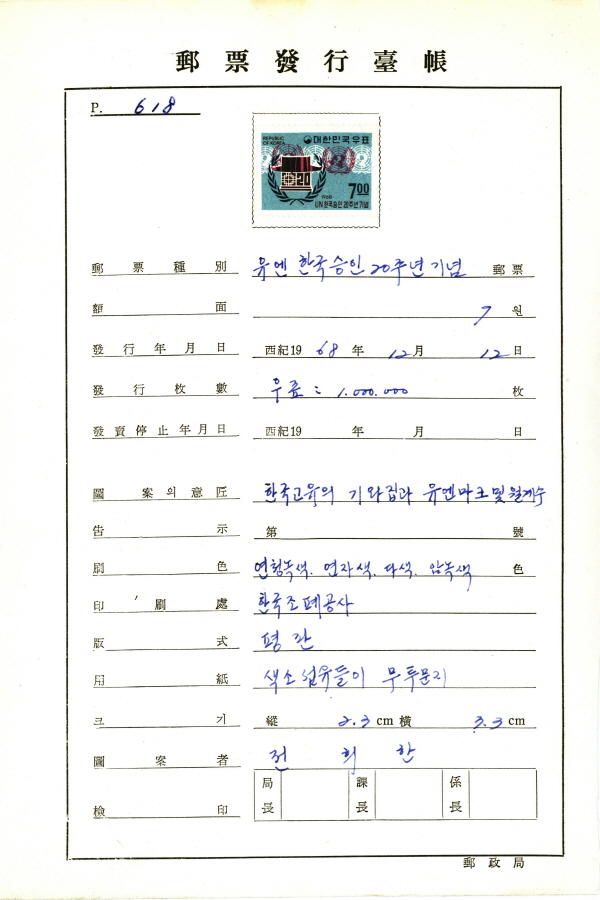 郵票發行臺帳
P. 618
REPUBLIC OF KOREA
대한민국우표
20
1968
7 00
UN 한국승인 20주년 기념
郵票種別 유엔 한국승인 20주년 기념 郵票
額面 7 원
發行年月日 西紀19 68 年 12 月 12 日
發行枚數 우표 : 1.000.000 枚
發賣停止年月日 西紀19 年 月 日
圖案의意匠 한국고유의 기와집과 유엔마크 및 월계수
告示 第 號
刷色 연청녹색. 연자색. 다색. 암녹색 色
印刷處 한국조폐공사
版式 평판
用紙 색소 섬유들이 무투문지
크기 縱 2.3 cm 橫 3.3 cm
圖案者 전희한
檢印 局長 課長 係長
郵政局